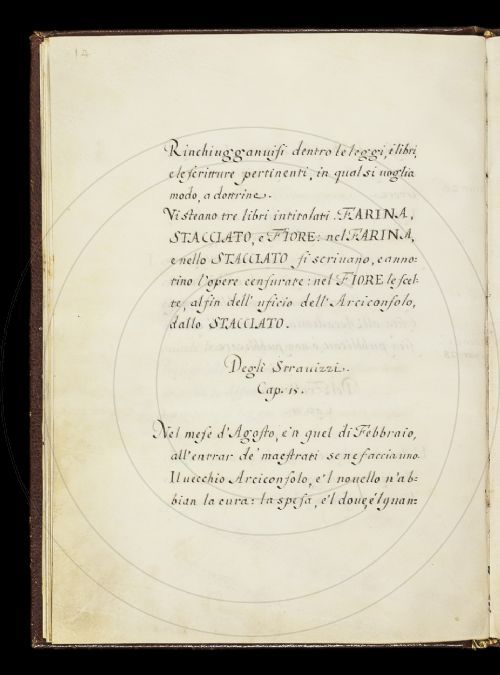 14
Rinchiugganuisi dentro le leggi, i libri,
e le scritture pertinenti, in qual si uoglia
modo, a dottrine.
Vi steano tre libri intitolati. FARINA,
STACCIATO, e FIORE: nel FARINA,
e nello STACCIATO si scriuano, e anno-
tino l'opere censurate: nel FIORE le scel-
te, al fin dell' uficio dell' Arciconsolo,
dallo STACCIATO.
Degli Strauizzi.
Cap. 15.
Nel mese d'Agosto, e'n quel di Febbraio,
all'entrar de' maestrati se ne faccia uno.
Il uecchio Arciconsolo, e'l nouello n'ab-
bian la cura: la spesa, e'l doue, e'l quan-